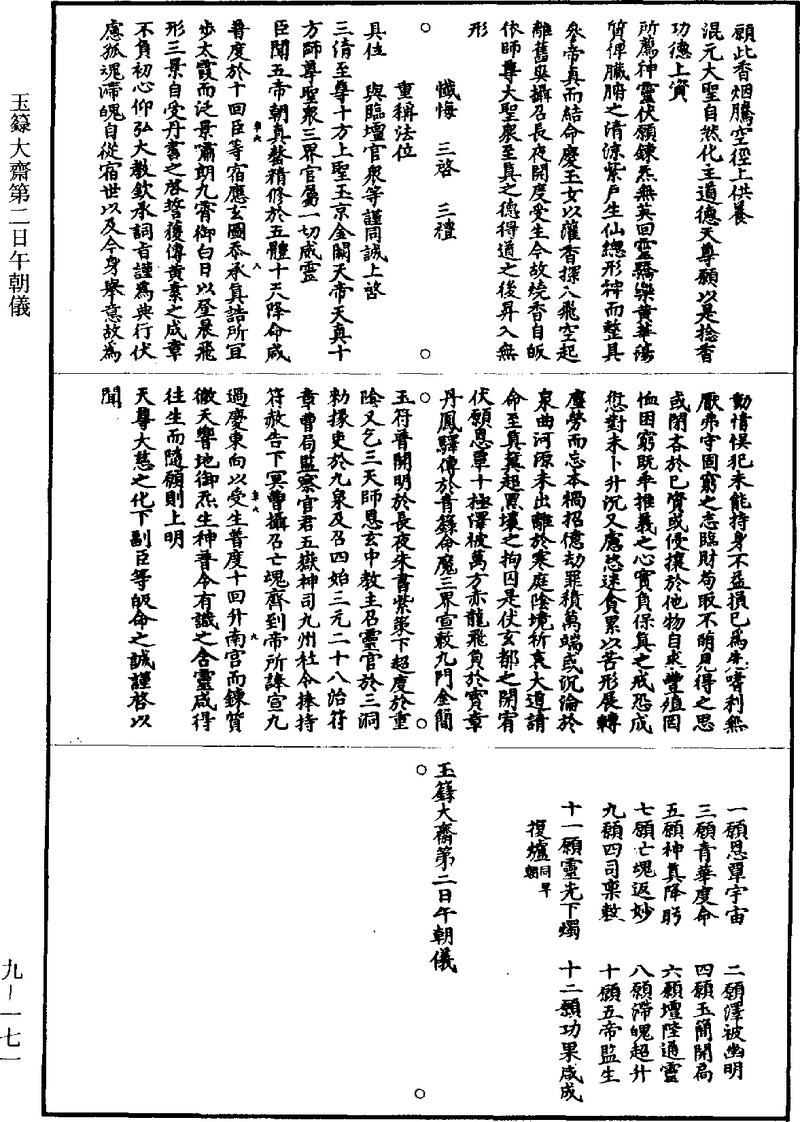 願此香烟騰空徑上供養
混元大聖自然化主道德天尊願以是捻香
功德上資
所薦神靈伏願鍊炁無英回靈驕樂黃華蕩
質俾臟腑之清涼紫戶生仙總形神而整具
參帝真而結命慶玉女以灌香探八飛空起
離舊與攝召長夜開度受生今故燒香自皈
依師尊大聖衆至真之德得道之後昇入無
形
懺悔 三啓 三禮
重稱法位
具位 與臨壇官衆等謹同誠上啓
三清至尊十方上聖玉京金闕天帝天真十
方師尊聖衆三界官屬一切威靈
臣聞五帝朝真鰲精修於五體十天降命咸
普度於十回臣等宿應玄圖忝承真誥所宜
步太霞而泛景霄朝九霄御白日以登晨飛
形三景自受丹書之啓誓獲傳黃素之成章
不負初心仰弘大教欽承詞旨謹爲典行伏
慮孤魂滯魄自從宿世以及今身舉意故爲
動情悮犯未能持身不益損已爲先嗜利無
厭弗守固窮之志臨財苟取不萌見得之思
或閉吝於已資或侵攘於他物自求豐殖罔
恤困窮既乖推義之心實負保真之戒怨成
愆對未卜升沉又慮愁迷貪累以苦形展轉
塵勞而忘本禍招億劫罪積萬端或沉淪於
泉曲河源未出離於寒庭陰境祈哀大道請
命至真冀超黑壤之拘囚是仗玄都之開宥
伏願恩覃十極澤被萬方赤龍飛負於寶章
丹鳳驛傳於青籙命魔三界宣敕九門金簡
玉符普開明於長夜朱書紫策下超度於重
陰又乞三天師恩玄中教主召靈官於三洞
勑掾吏於九泉及召四始三元二十八治符
章曹局監察官君五嶽神司九州社令捧持
符赦告下冥曹攝召亡魂齊到帝所諱宣九
過慶東向以受生普度十回升南宮而鍊質
徹天響地御炁生神普令有識之含靈咸得
往生而隨願則上明
天尊大慈之化下副臣等皈命之誠謹啓以
聞
一願恩覃宇宙 二願澤被幽明
三願青華度命 四願玉簡開局
五願神真降眄 六願壇陛通靈
七願亡魂返妙 八願滯魄超升
九願四司稟敕 十願五帝監生
十一願靈光下燭 十二願功果咸成
復爐同早朝
玉籙大齋第二日午朝儀
玉籙大齋第二日午朝儀
九－一七一